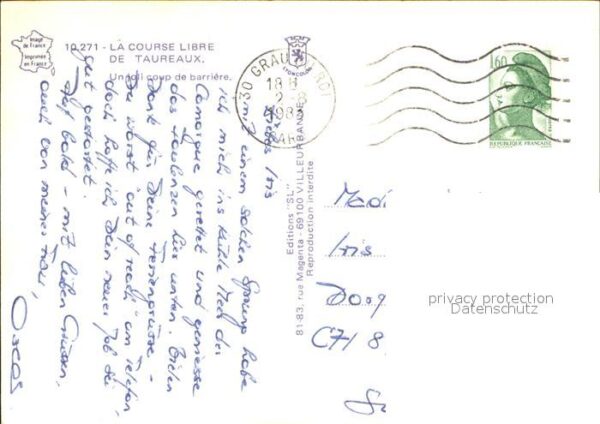 Image
de France
Imprimée
en France
10.271 - LA COURSE LIBRE
DE TAUREAUX.
Un joli coup de barrière.
LYONCOLOR
30 GRAU DU ROI
18 H
2
1983
GARD
1,60
REPUBLIQUE FRANÇAISE
Editions "SL"
81-83, rue Magenta - 69100 VILLEURBANNE
Reproduction interdite
Liebes Iris
mit einem solchen Sprung habe
ich mich ins kühle Meer der
Camargue gerettet und geniesse
das Faulenzen hier unten. Vielen
Dank für Deine Feriengrüsse. -
Du warst "out of reach" am Telefon
doch hoffe ich Dein neuer Job sei
gut gestartet.
Auf bald - mit lieben Grüssen,
auch von meiner Frau,
Oscar
Iris
CH 8
privacy protection
Datenschutz